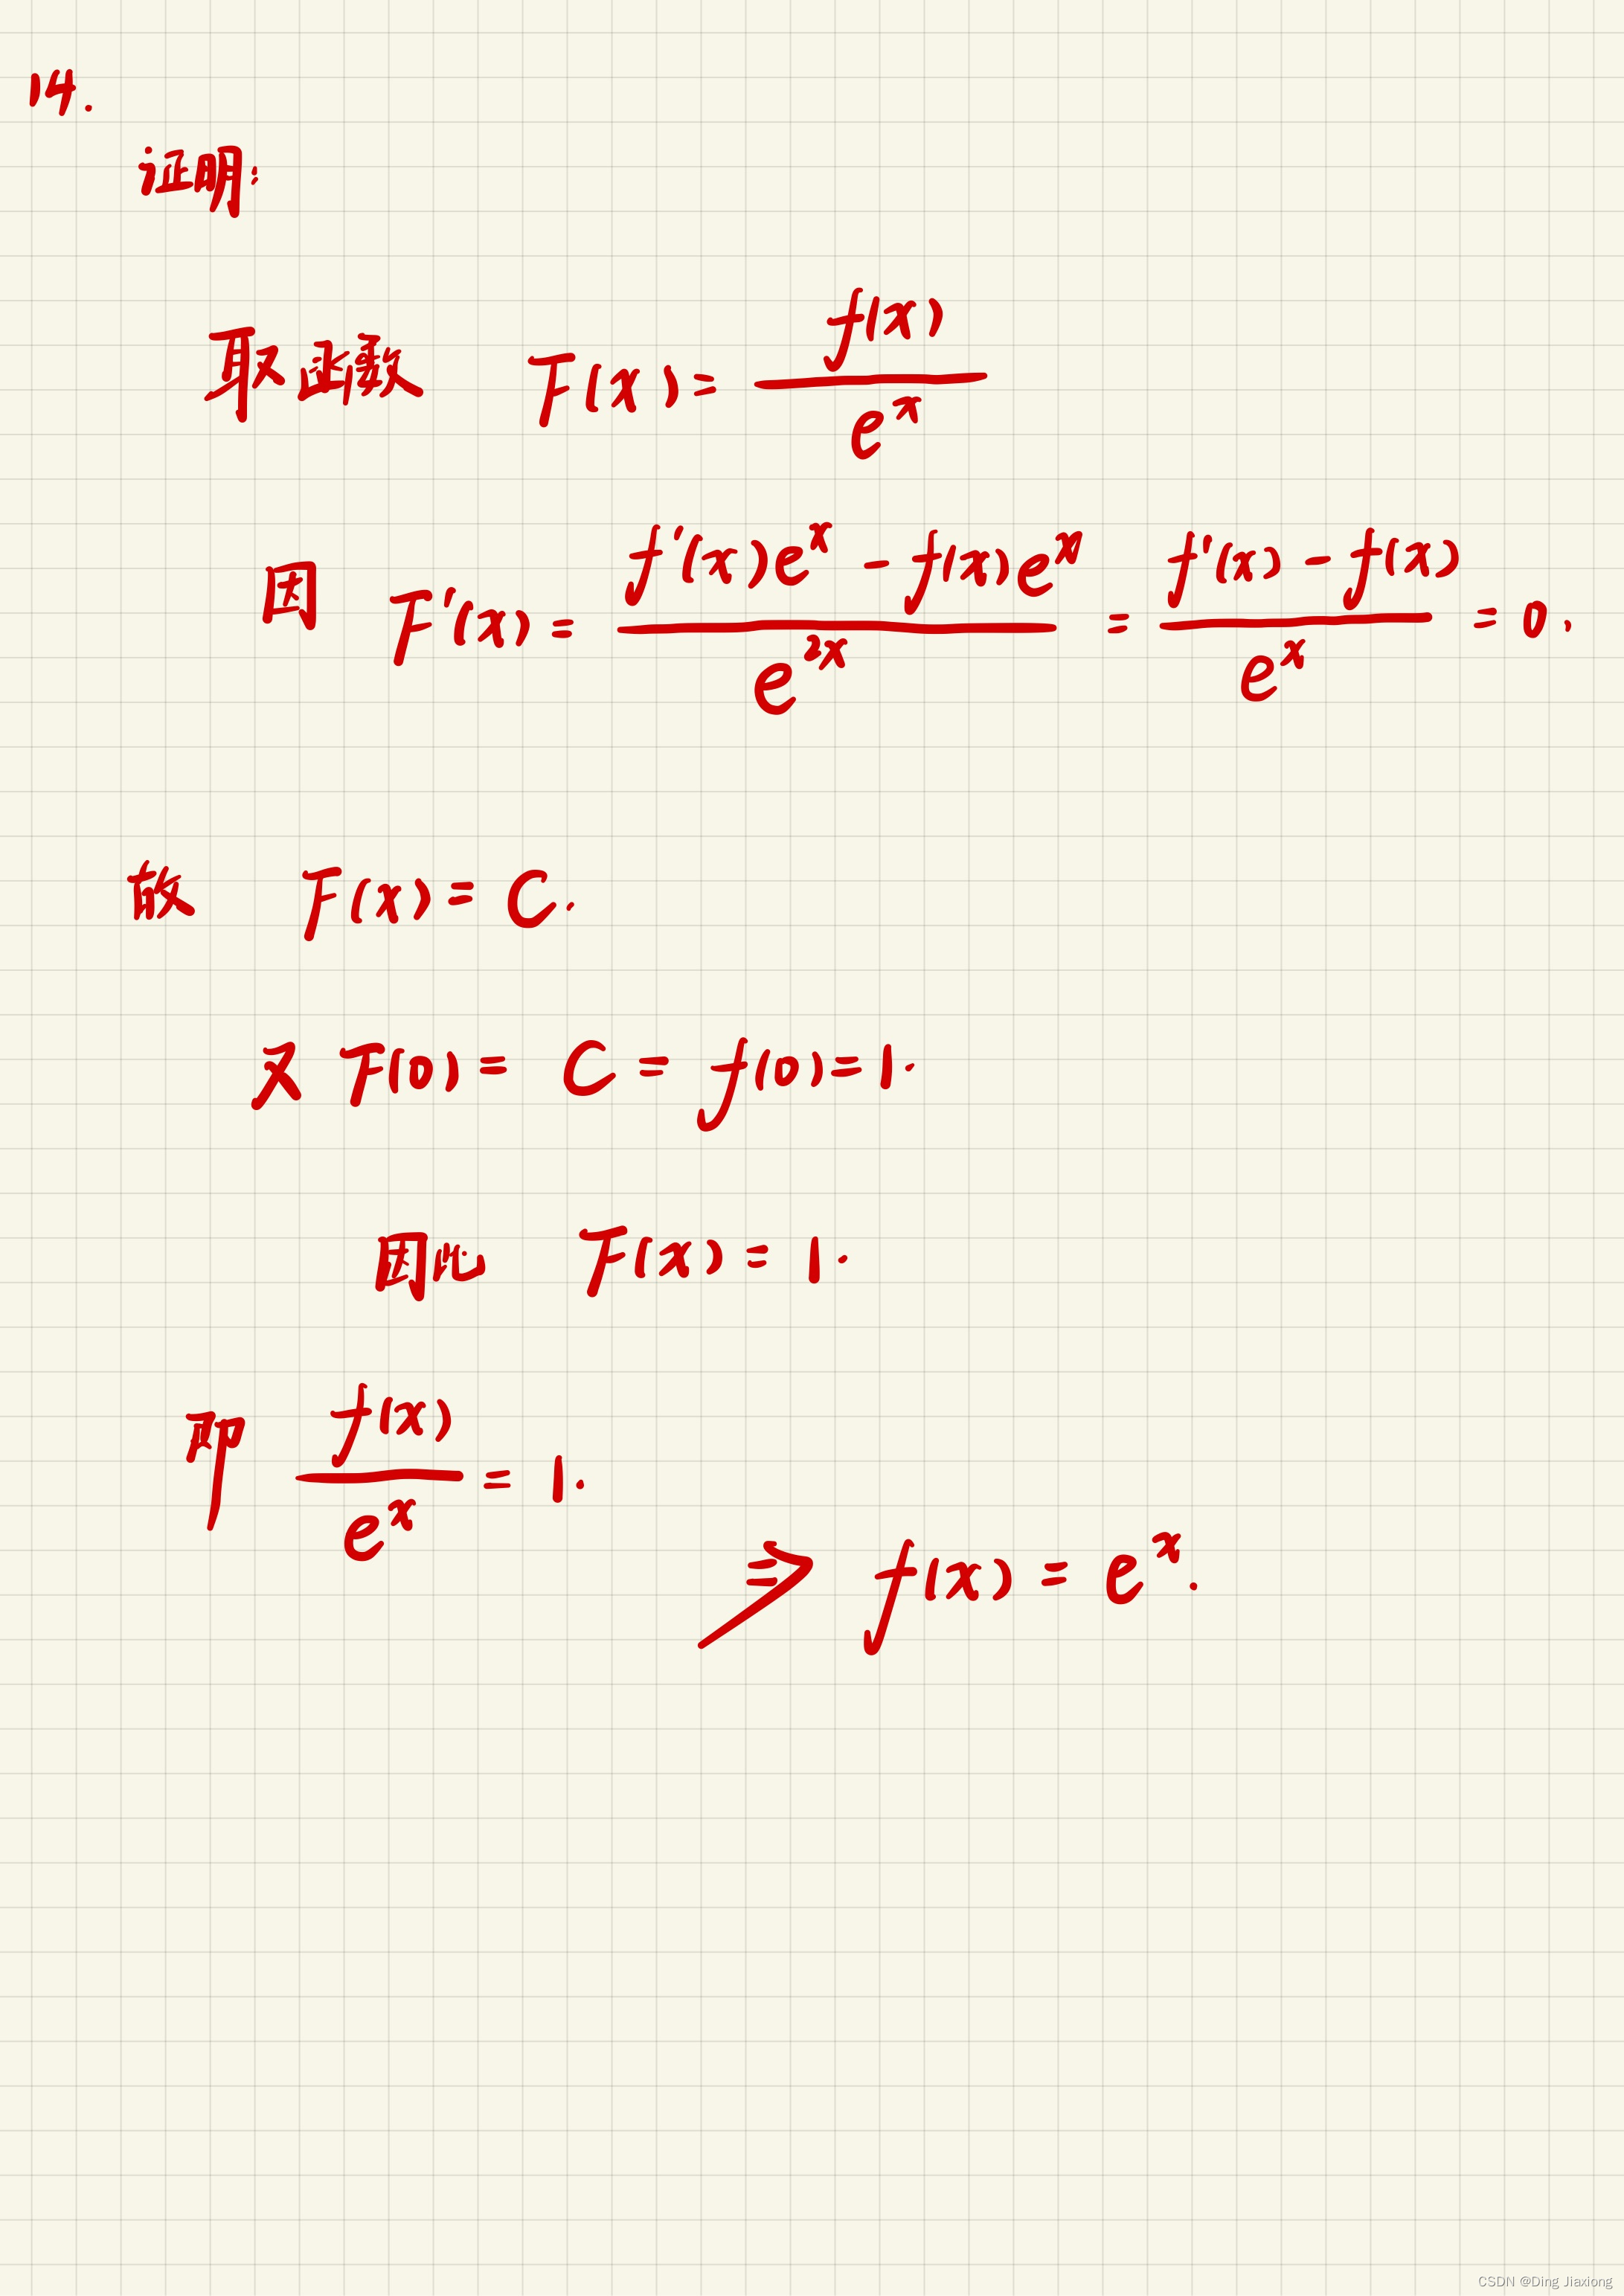 14.
证明:
取函数 F(x) = f(x) / e^x
因 F'(x) = (f'(x)e^x - f(x)e^x) / e^{2x} = (f'(x) - f(x)) / e^x = 0,
故 F(x) = C.
又 F(0) = C = f(0) = 1.
因此 F(x) = 1.
即 f(x) / e^x = 1.
⇒ f(x) = e^x.
CSDN @Ding Jiaxiong